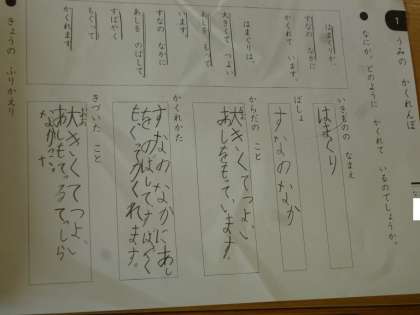 1
うみの かくれんぼ
なにが、どのように かくれて いるのでしょうか。
はまぐりが、
すなの なかに
かくれて います。
はまぐりは、
大きくて つよい
あしを もって
います。
すなの なかに
あしを のばして、
すばやく
もぐって
かくれます。
いきものの なまえ
はまぐり
ばしょ
すなのなか
からだの こと
大きくてつよい、
あしをもっています。
かくれかた
すなのなかにあし
をのばしてすばやく
もぐってかくれます。
きづいた こと
大きくてつよい
あしもってるてしら
なかった。
きょうの ふりかえり